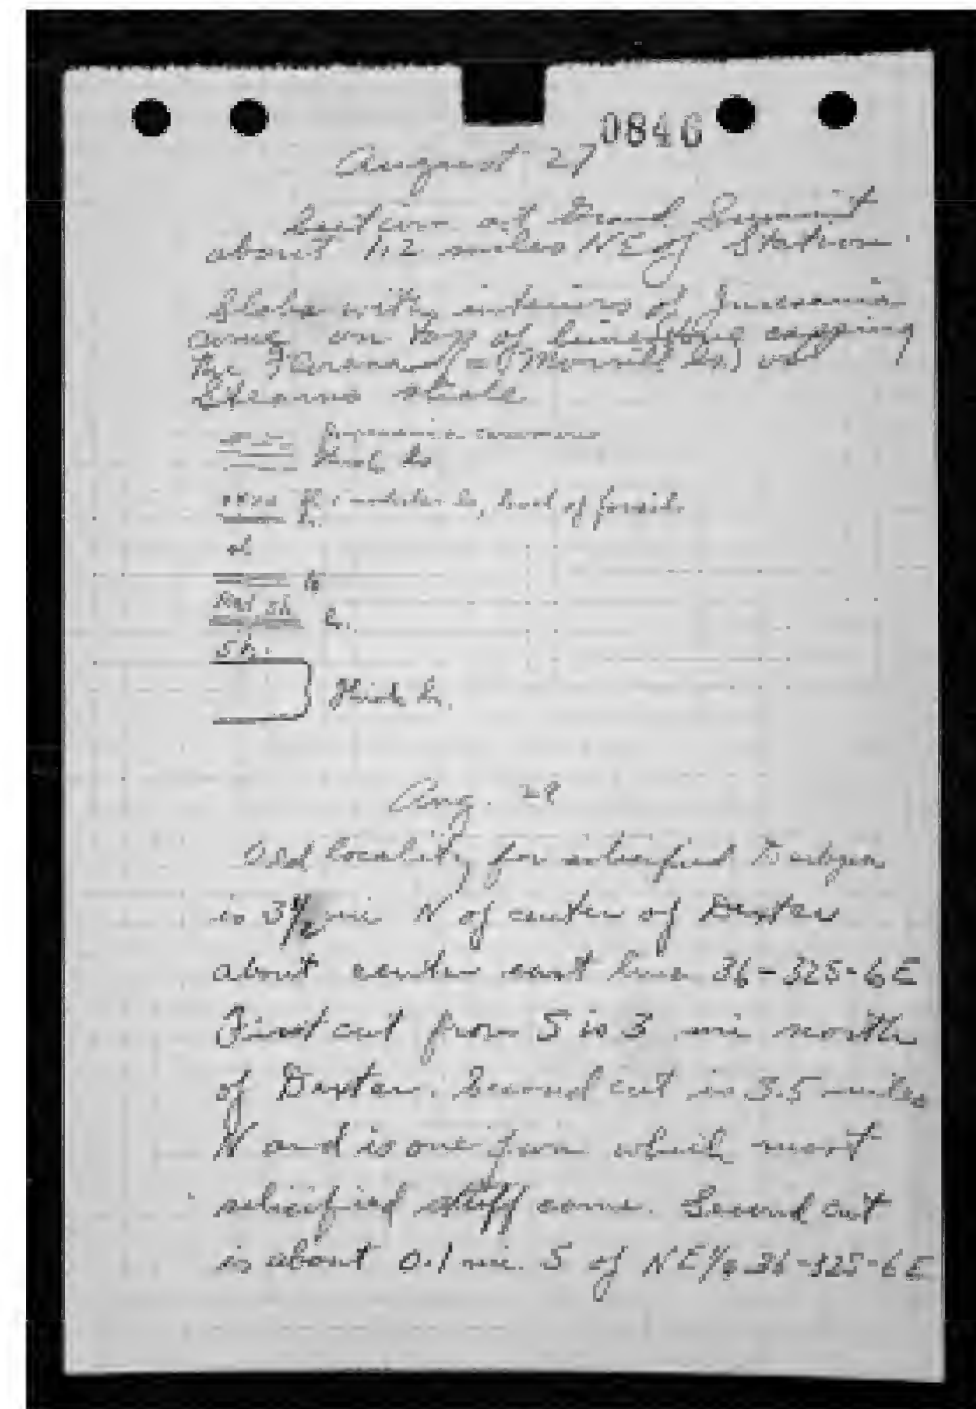 0846
August 27
Section at Grand Summit
about 1.2 miles NE of Station.
Slabs with interiors of Juresania
come on top of limestone capping
the Florena (= Morrill ls.) or
Stearns shale
Juresania
Thick ls
nodular ls, level of fossils
ls.
sh
ls
Red sh
ls.
Sh.
Thick ls.
Aug. 28
Old locality for silicified Derbyia
is 3 1/2 mi N of center of Dexter
about center east line 36-32S-6E
First cut from S is 3 mi north
of Dexter. Second cut is 3.5 miles
N and is one from which most
silicified stuff came. Second cut
is about 0.1 mi. S of NE/c 36-32S-6E